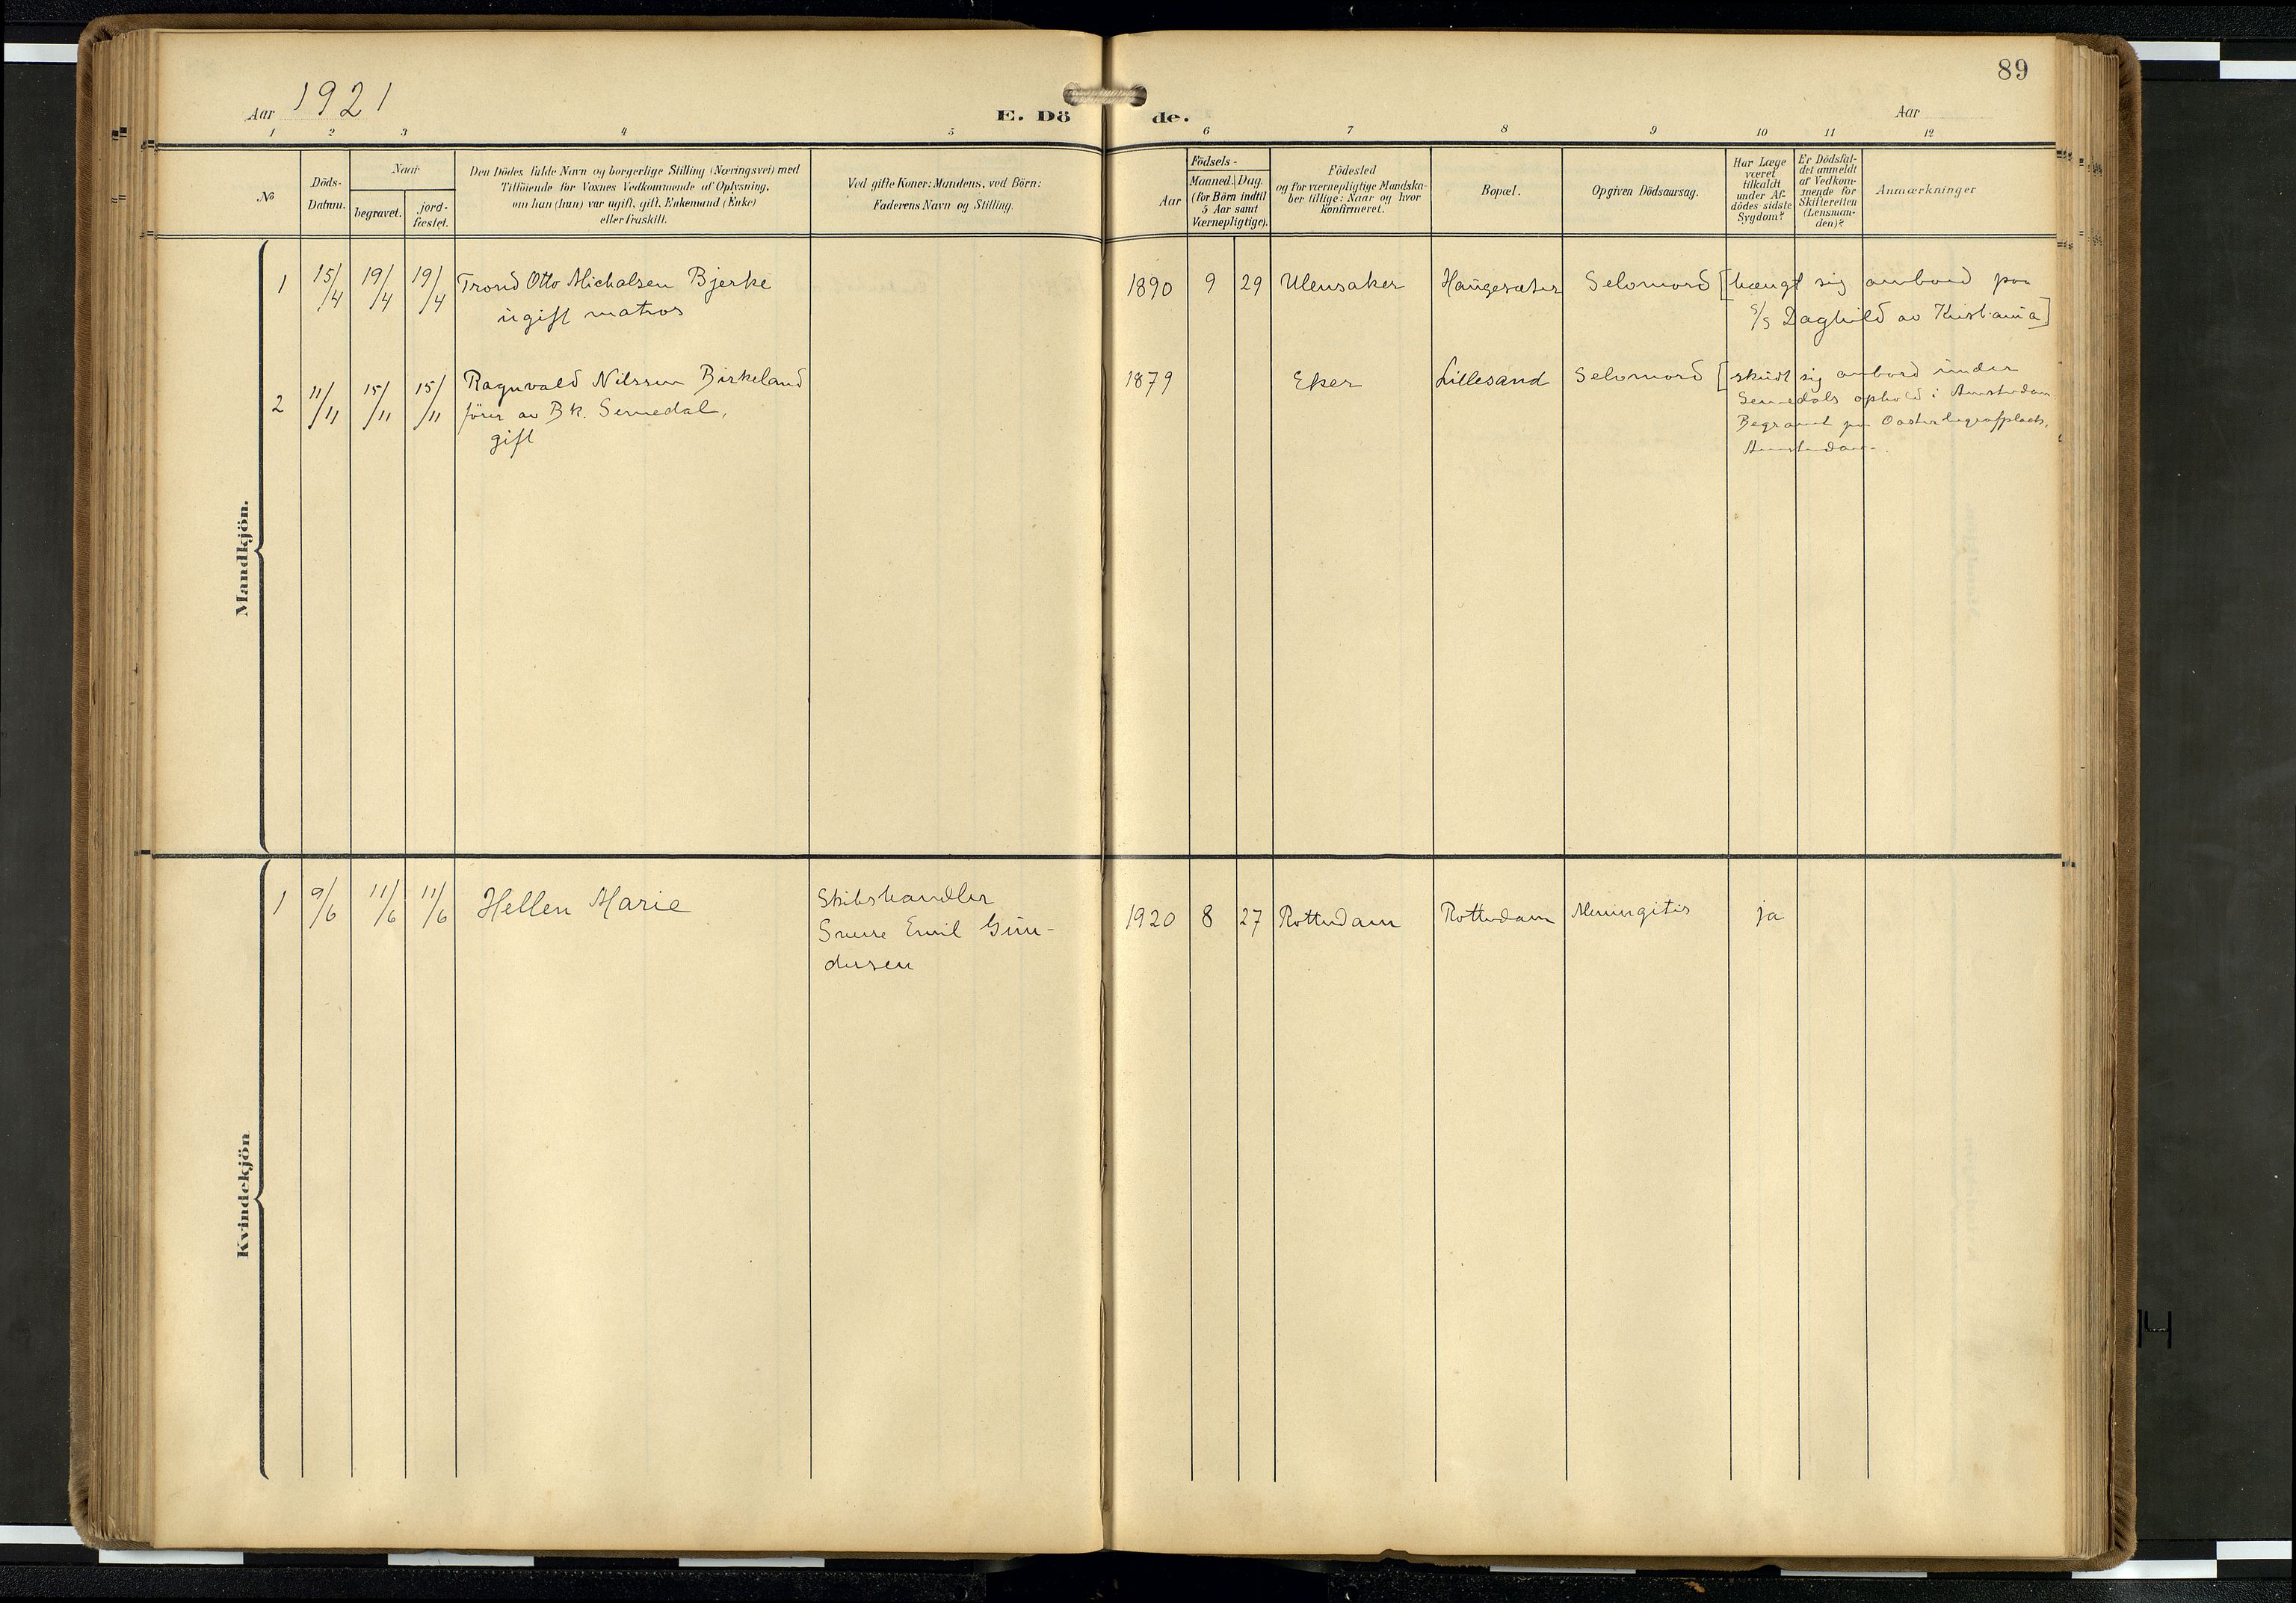 89
Aar 1921
E. Dö de.
Aar
1 2 3 4 5 6 7 8 9 10 11 12
No
Döds-
Datum.
Naar
begravet.
jord-
fæstet.
Den Dödes fulde Navn og borgerlige Stilling (Næringsvei) med
Tilföiende for Voxnes Vedkommende af Oplysning,
om han (hun) var ugift, gift, Enkemand (Enke)
eller fraskilt.
Ved gifte Koner: Mandens, ved Börn:
Faderens Navn og Stilling.
Aar
Födsels-
Maaned. Dag.
(for Börn indtil
5 Aar samt
Værnepligtige).
Födested
og for værnepligtige Mandska-
ber tillige: Naar og hvor
konfirmeret.
Bopæl.
Opgiven Dödsaarsag.
Har Læge
været
tilkaldt
under Af-
dödes sidste
Sygdom?
Er Dödsfal-
det anmeldt
af Vedkom-
mende for
Skifteretten
(Lensman-
den)?
Anmærkninger
Mandkjön.
1 15/4 19/4 19/4 Trond Otto Michalsen Bjerke
ugift matros
1890 9 29 Ulensaker Haugesæter Selvmord [hængt sig ombord paa
S/S Daghild av Kristiania]
2 11/11 15/11 15/11 Ragnvald Nilssen Birkeland
förer av Bk. Semedal,
gift
1879 Eker Lillesand Selvmord [skudt sig ombord under
Semedals ophold i Amsterdam
Begravet paa
Amsterdam.
Kvindekjön
1 9/6 11/6 11/6 Hellen Marie
Skibshandler
Sverre Emil Gun-
dersen
1920 8 27 Rotterdam Rotterdam Meningitis ja